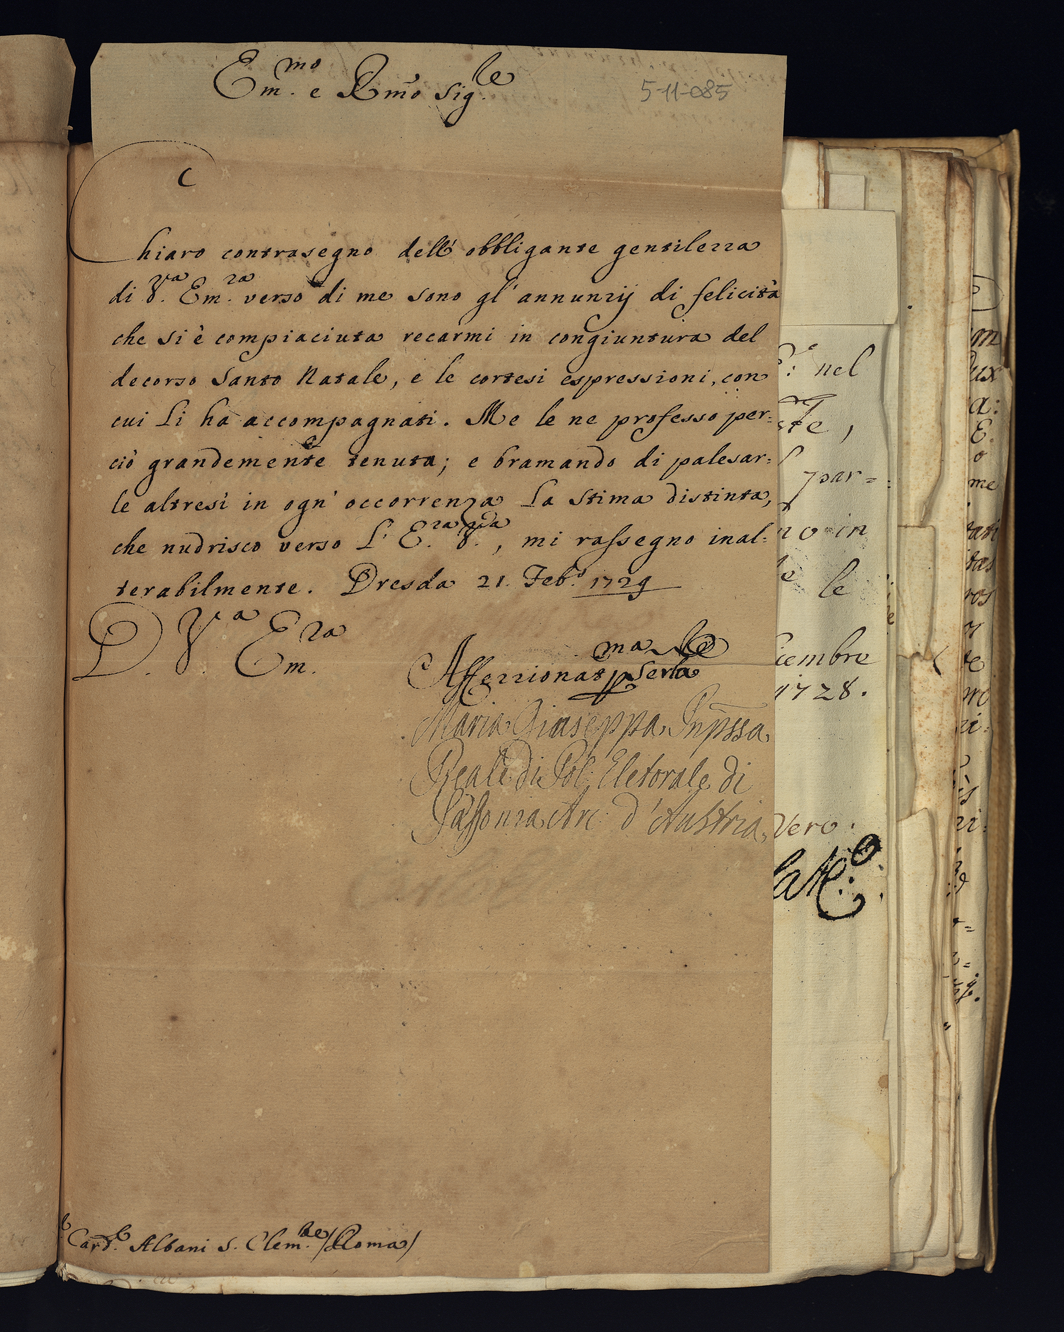 Em.mo e Rmo Sig.le
5-11-085
Chiaro contrasegno dell' obbligante gentilezza
di V.a Em.za verso di me sono gl' annunzij di felicità
che si è compiaciuta recarmi in congiuntura del
decorso Santo Natale, e le cortesi espressioni, con
cui li ha accompagnati. Me le ne professo per=
ciò grandemente tenuta; e bramando di palesar=
le altresì in ogn' occorrenza la stima distinta,
che nudrisco verso L' E.za V.ra, mi rassegno inal=
terabilmente. Dresda 21. Feb.o 1729
D. V.a Em.za
Affezzionat.ma p Serla
Maria Giuseppa Pripssa
Reale di Pol: Eletorale di
Sassonia Arc: d'Austria
Card.l Albani S. Clem.te /Roma/
nel
par=
in
le
cembre
1728.
vero
me